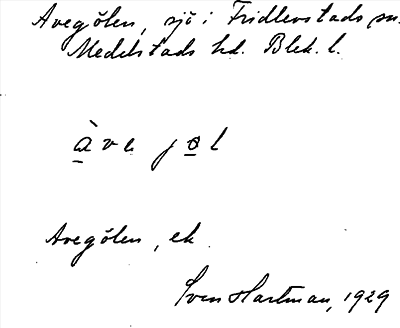 Avegölen, sjö i Fridlevstads sn.
Medelstads hd. Blek. l.
àve jöl
Avegölen, ek
Sven Hartman, 1929